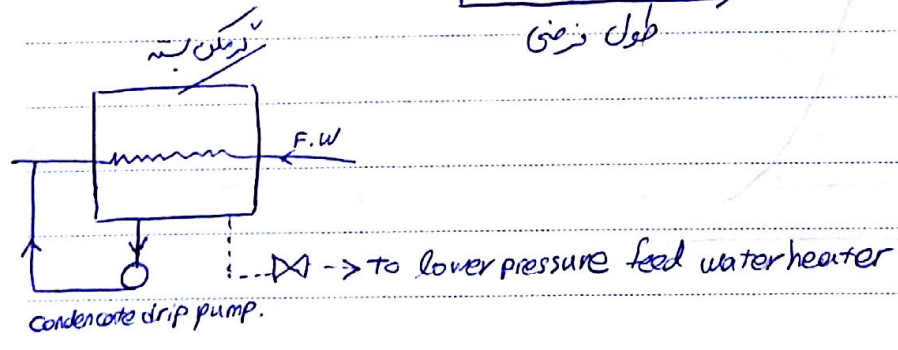 طول فرضی
گرمکن بسته
F.W
to lower pressure feed water heater
Condencate drip pump.